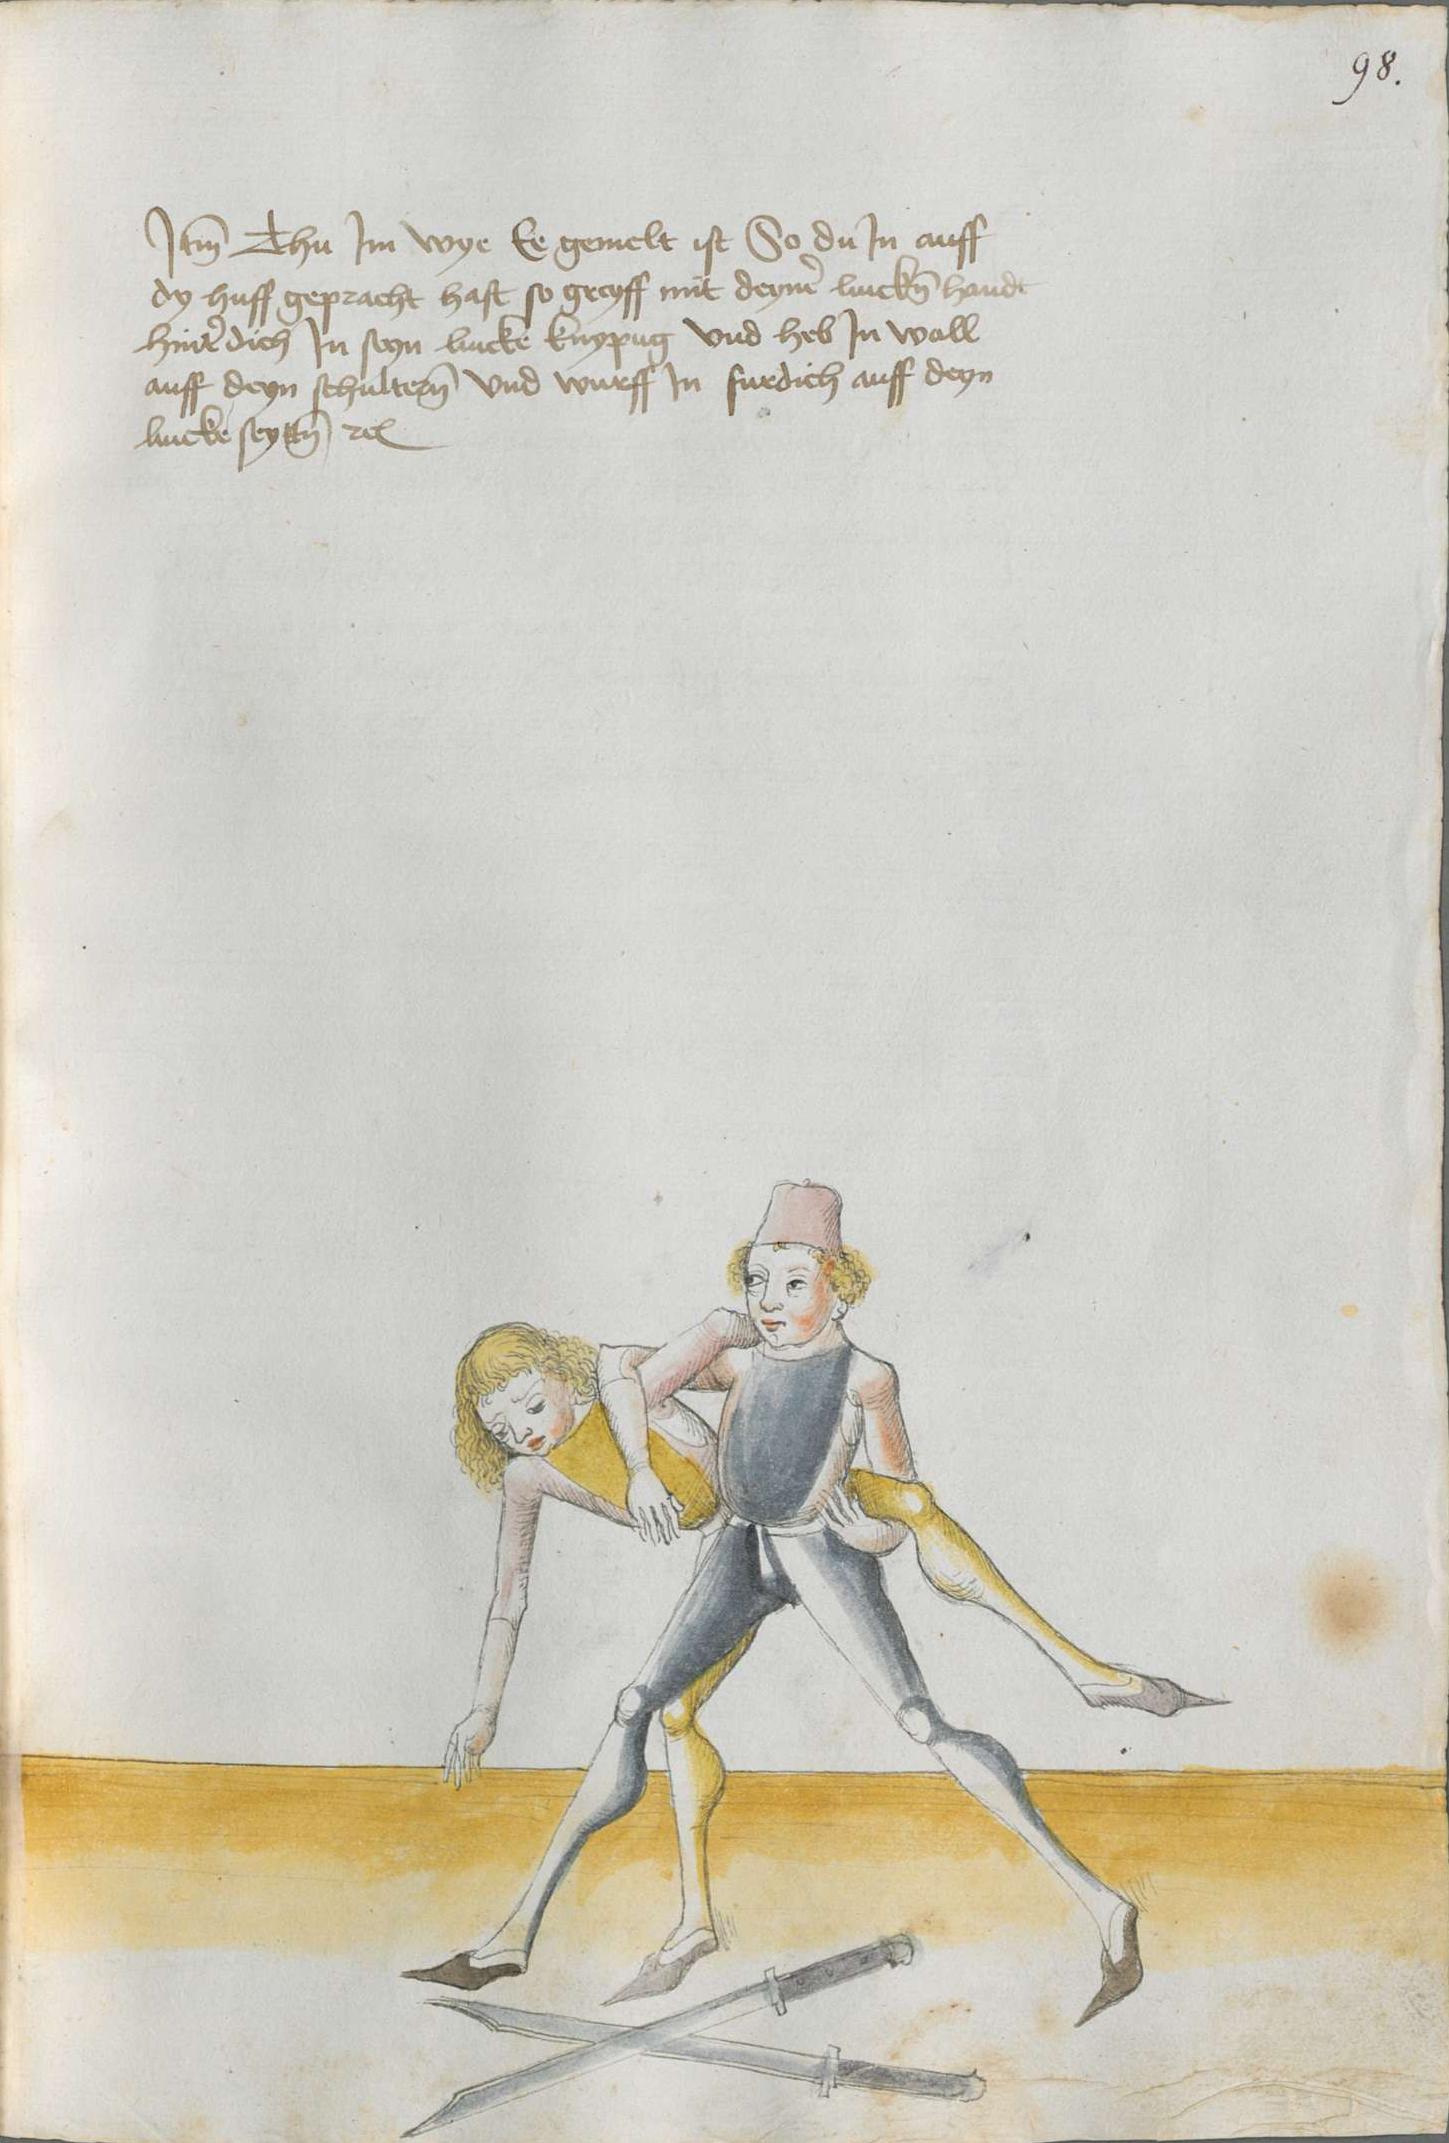 98.
Itm̄ Thu Im wye Ee gemelt ist So du In auff
dy huff gepracht hast so greyff mit deyner̄ linckn̄ handt
hinter̄ dich In seyn lincke knypug vnd heb In woll
auff deyn schultern̄ vnd wurff In furdich auff deyn
lincke seyttn̄ rc